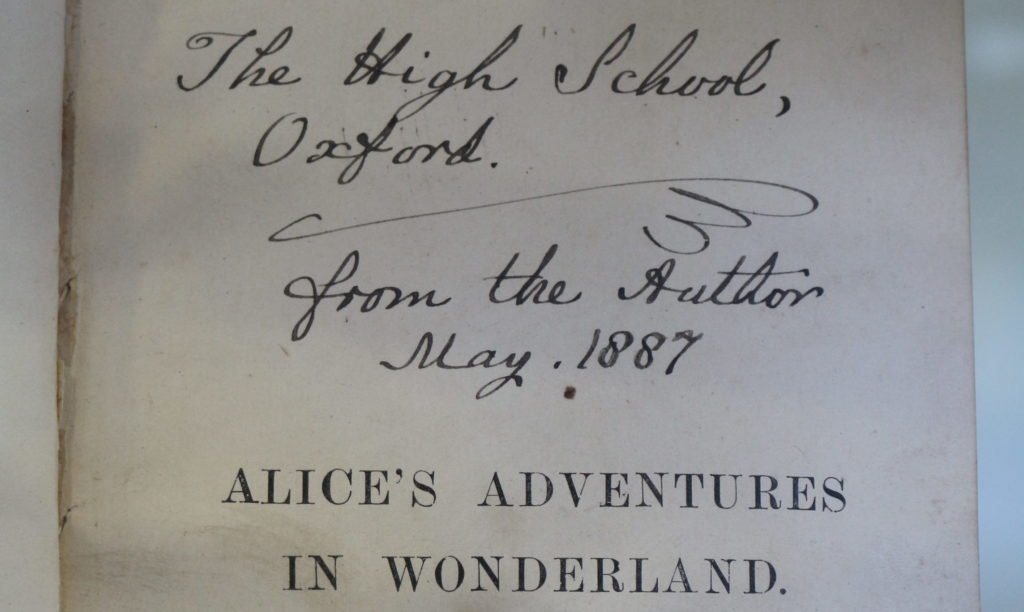 The High School,
Oxford.
from the Author
May. 1887
ALICE'S ADVENTURES
IN WONDERLAND.